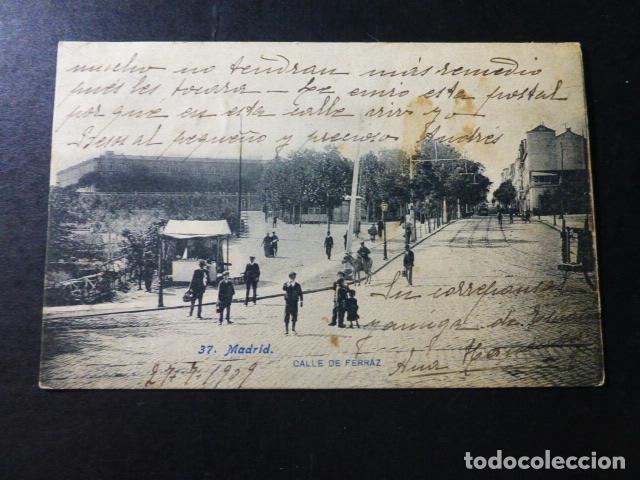 mucho no tendran más remedio
pues les tocara - Te envio esta postal
por que en esta calle vivo yo
Besos al pequeño y precioso Andrés
Su
amiga de
Ana
37. Madrid.
CALLE DE FERRAZ
27-7-1909
todocoleccion.net